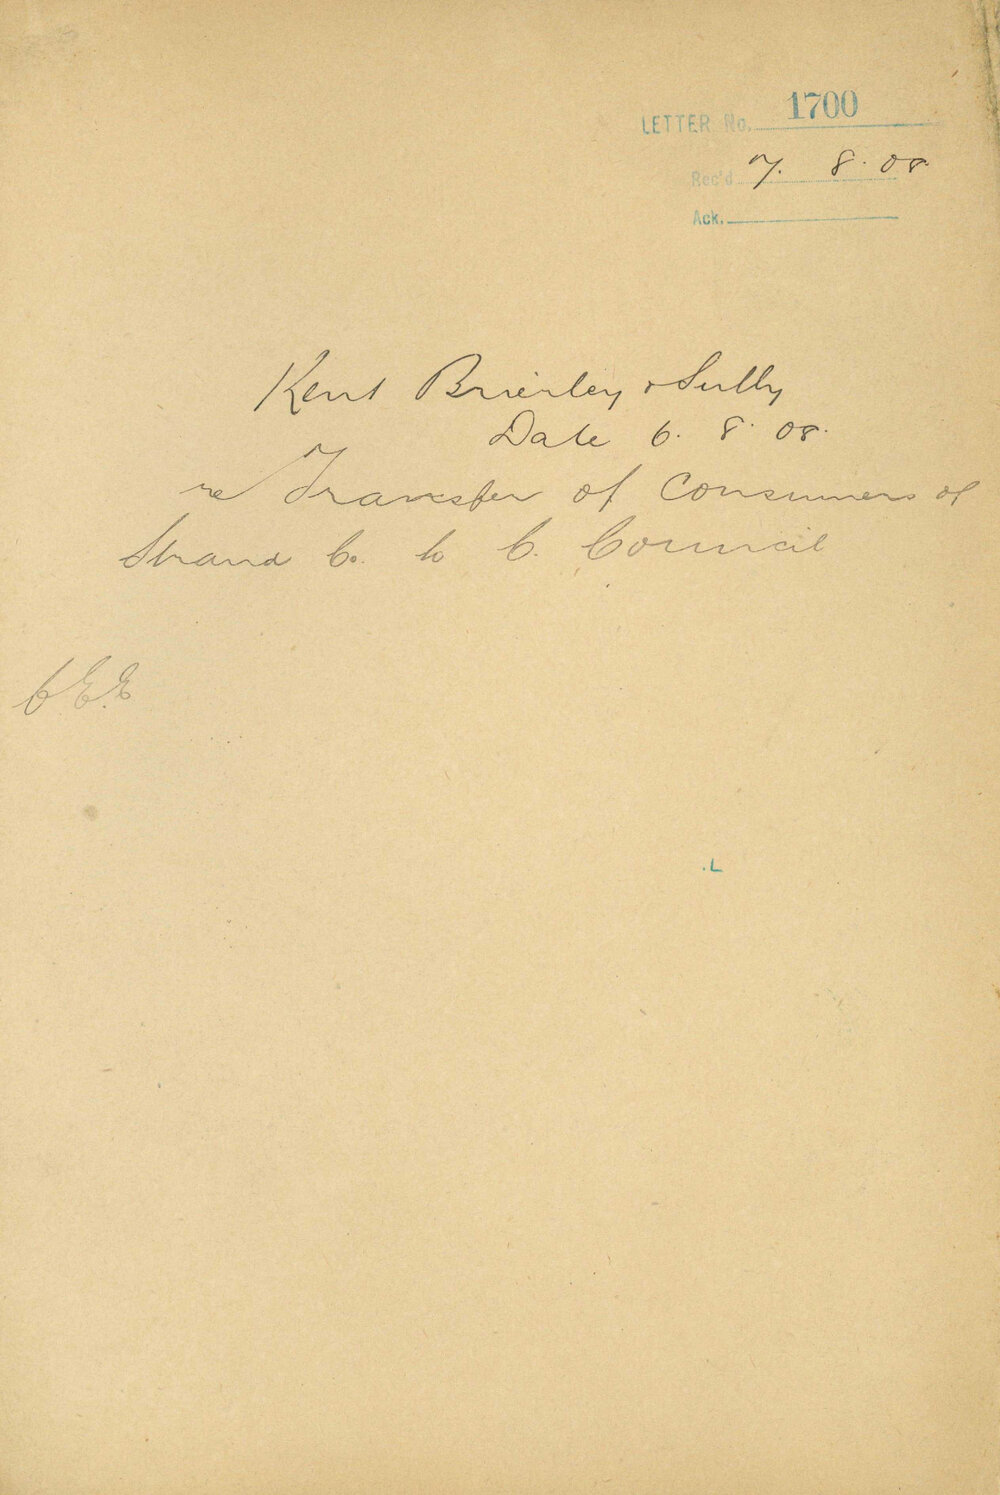 LETTER No. 1700
Rec'd 7. 8. 08.
Ack.
Kent Brierley & Sully
Date 6. 8. 08.
re Transfer of Consumers of
Strand Co. to C. Council
C.E.E
.L